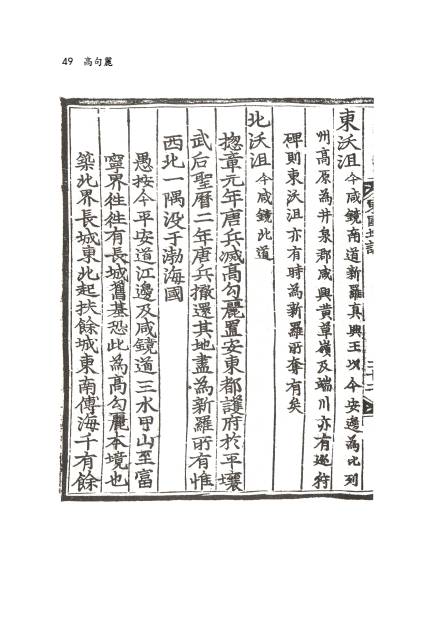 49 高句麗
東沃沮 今咸鏡南道新羅真興王以今安邊為比列
州高原為井泉郡咸興黃草嶺及端川亦有巡狩
碑則東沃沮亦有時為新羅所奪有矣
北沃沮 今咸鏡北道
摠章元年唐兵滅高勾麗置安東都護府於平壤
武后聖曆二年唐兵撤還其地盡為新羅所有惟
西北一隅沒于渤海國
愚按今平安道江邊及咸鏡道三水甲山至富
寧界往往有長城舊基恐此為高勾麗本境也
築北界長城東北起扶餘城東南傅海千有餘